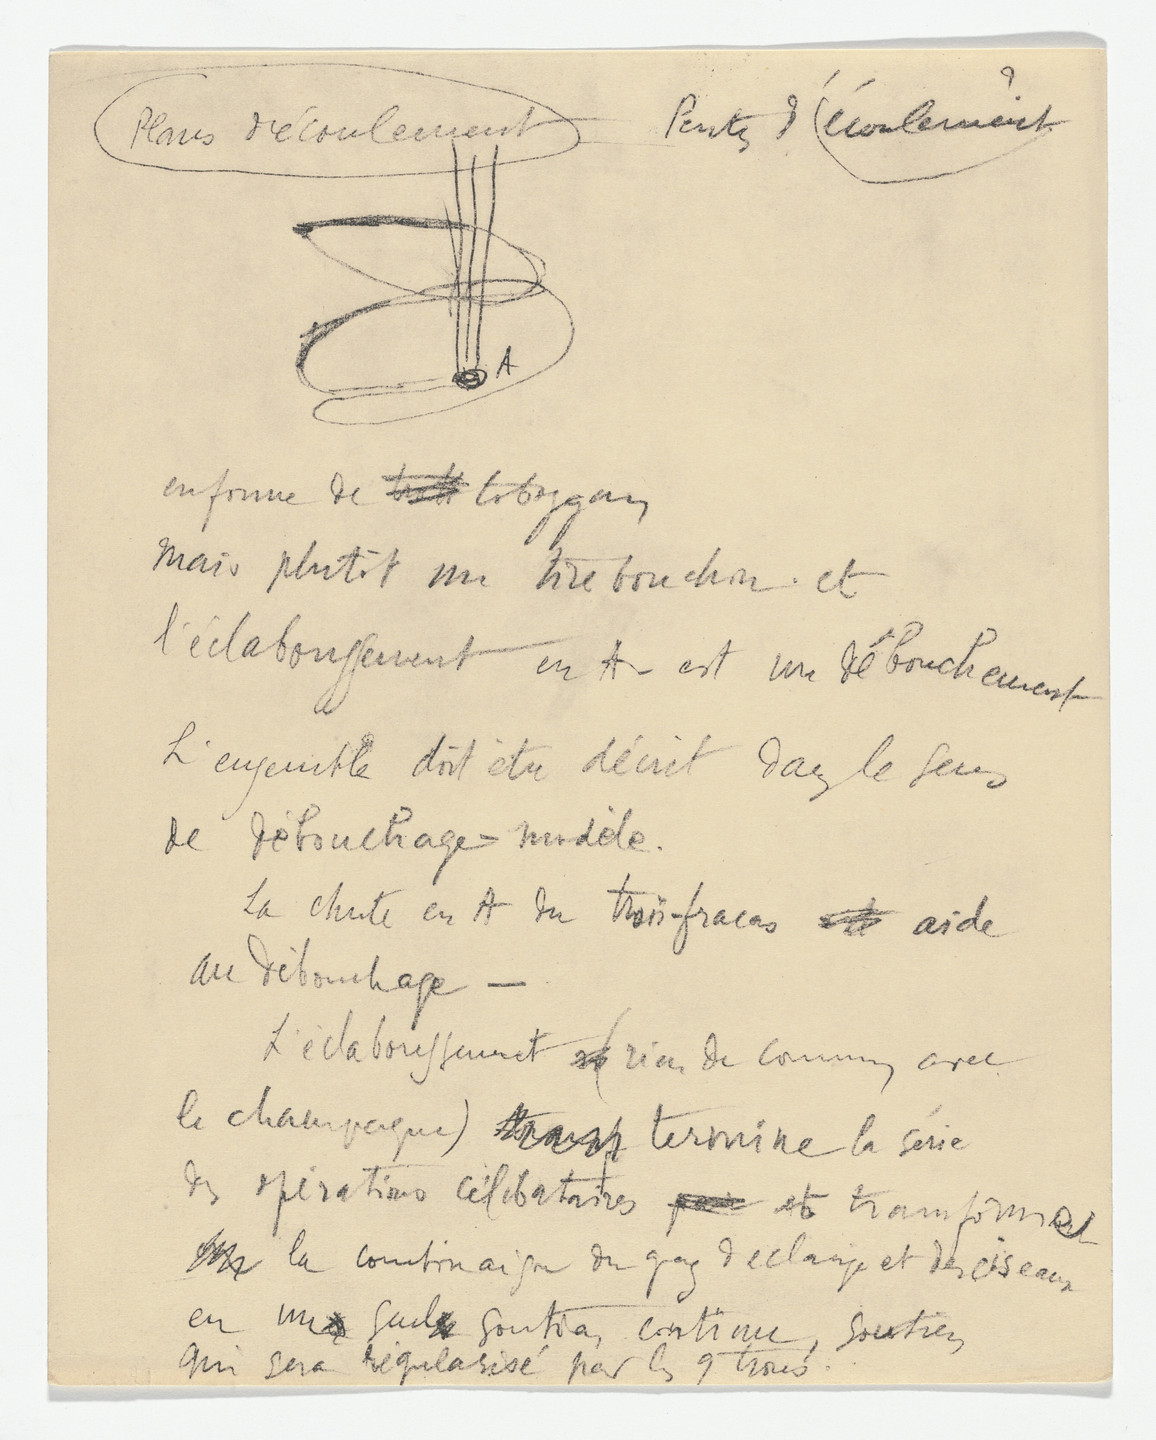 Plans d'écoulement
Pentes d'(écoulement
A
en forme de toboggan,
mais plutôt un tire bouchon. et
l'éclaboussement en A - est un débouchement
L'ensemble doit être décrit dans le sens
de débouchage = modèle.
La chute en A du trois-fracas aide
au débouchage —
L'éclaboussement (rien de commun avec
le champagne) termine la série
des opérations célibataires et transforme
la combinaison du gaz d'éclairage et des ciseaux
en un seul soutien continu, soutien
qui sera régularisé par les 9 trous.